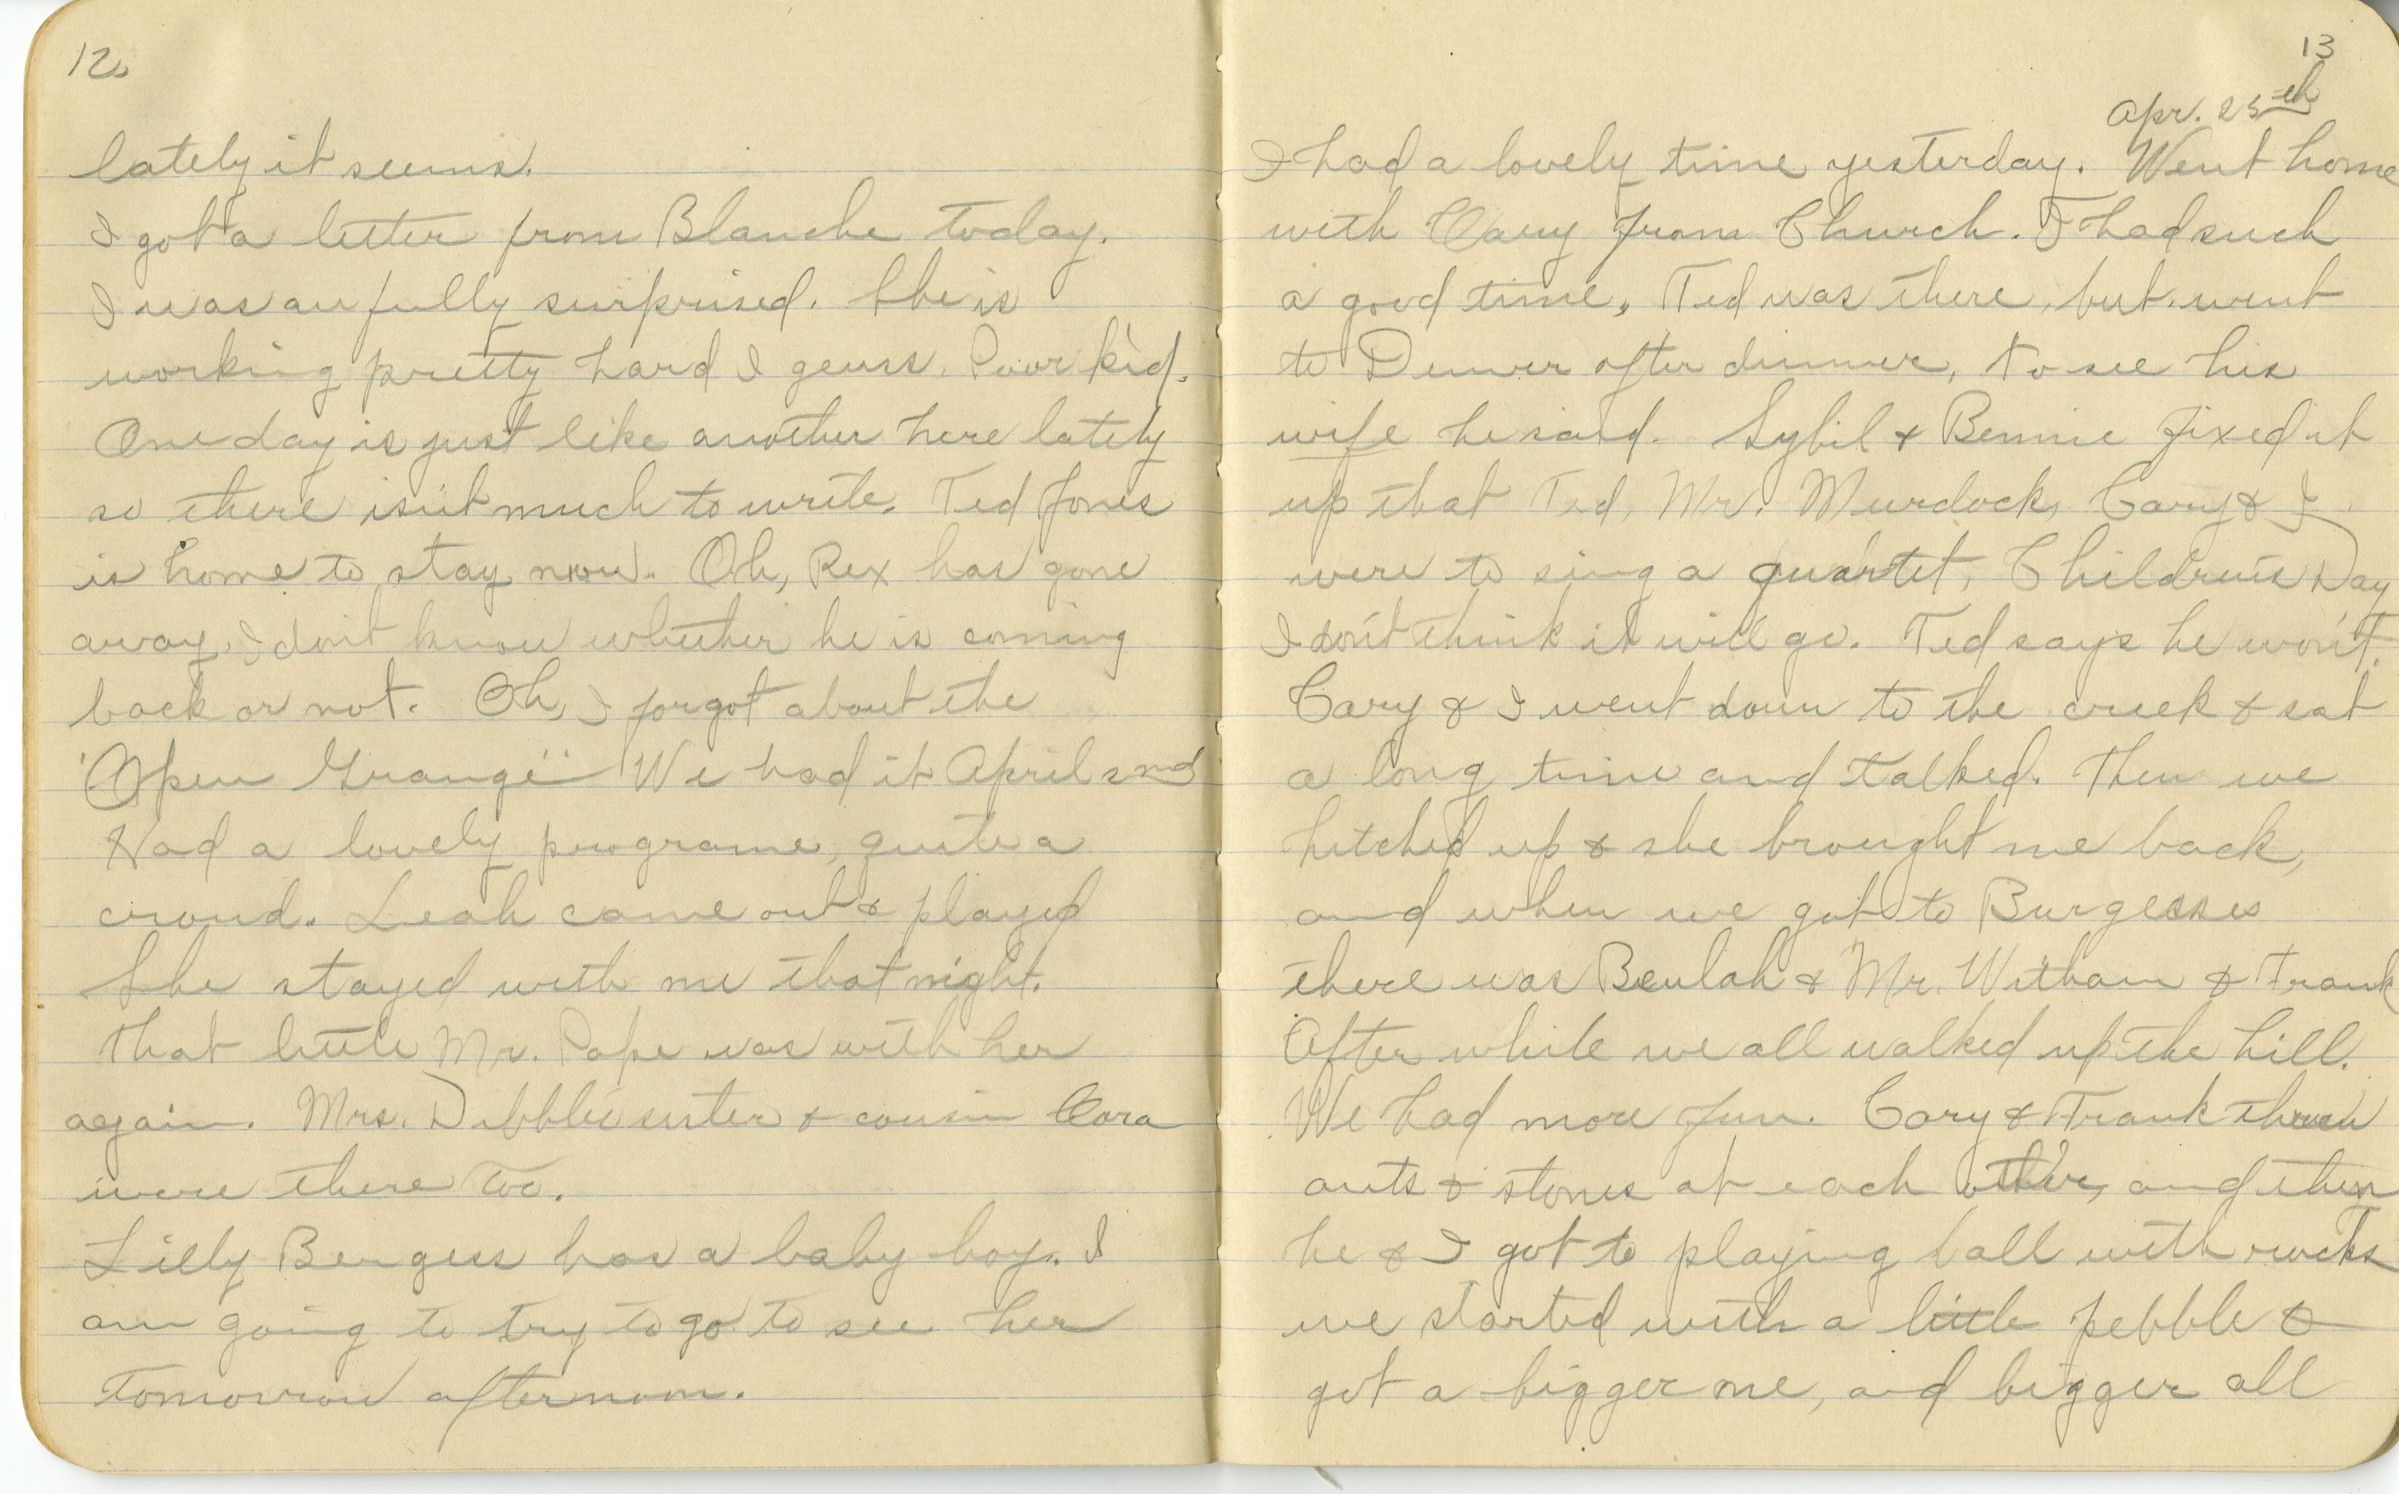 12.
lately it seems.
I got a letter from Blanche today.
I was aufully surprised. She is
working pretty hard I geuss. Poor kid.
One day is just like another here lately
so there isn't much to write. Ted Jones
is home to stay now. Oh, Rex has gone
away, I don't know whether he is coming
back or not. Oh, I forgot about the
"Open Grange" We had it April 2nd
Had a lovely programe, quite a
crowd. Leah came out & played
She stayed with me that night.
that little Mr. Pape was with her
again. Mrs. Dibbles sister & cousin Cora
were there too.
Lilly Bergess has a baby boy. I
am going to try to go to see her
tomorrow afternoon.
13
Apr. 25th
I had a lovely time yesterday. Went home
with Cary from Church. I had such
a good time, Ted was there, but went
to Denver after dinner, to see his
wife he said. Sybil & Bennie fixed it
up that Ted, Mr. Murdock, Cary & I
were to sing a quartet, Children's Day
I don't think it will go. Ted says he won't.
Cary & I went down to the creek & sat
a long time and talked. Then we
hitched up & she brought me back,
and when we got to Burgesses
there was Beulah & Mr. Witham & Frank
After while we all walked up the hill.
We had more fun. Cary & Frank threw
& stones at each other, and then
he & I got to playing ball with rocks
we started with a little pebble &
got a bigger one, and bigger all